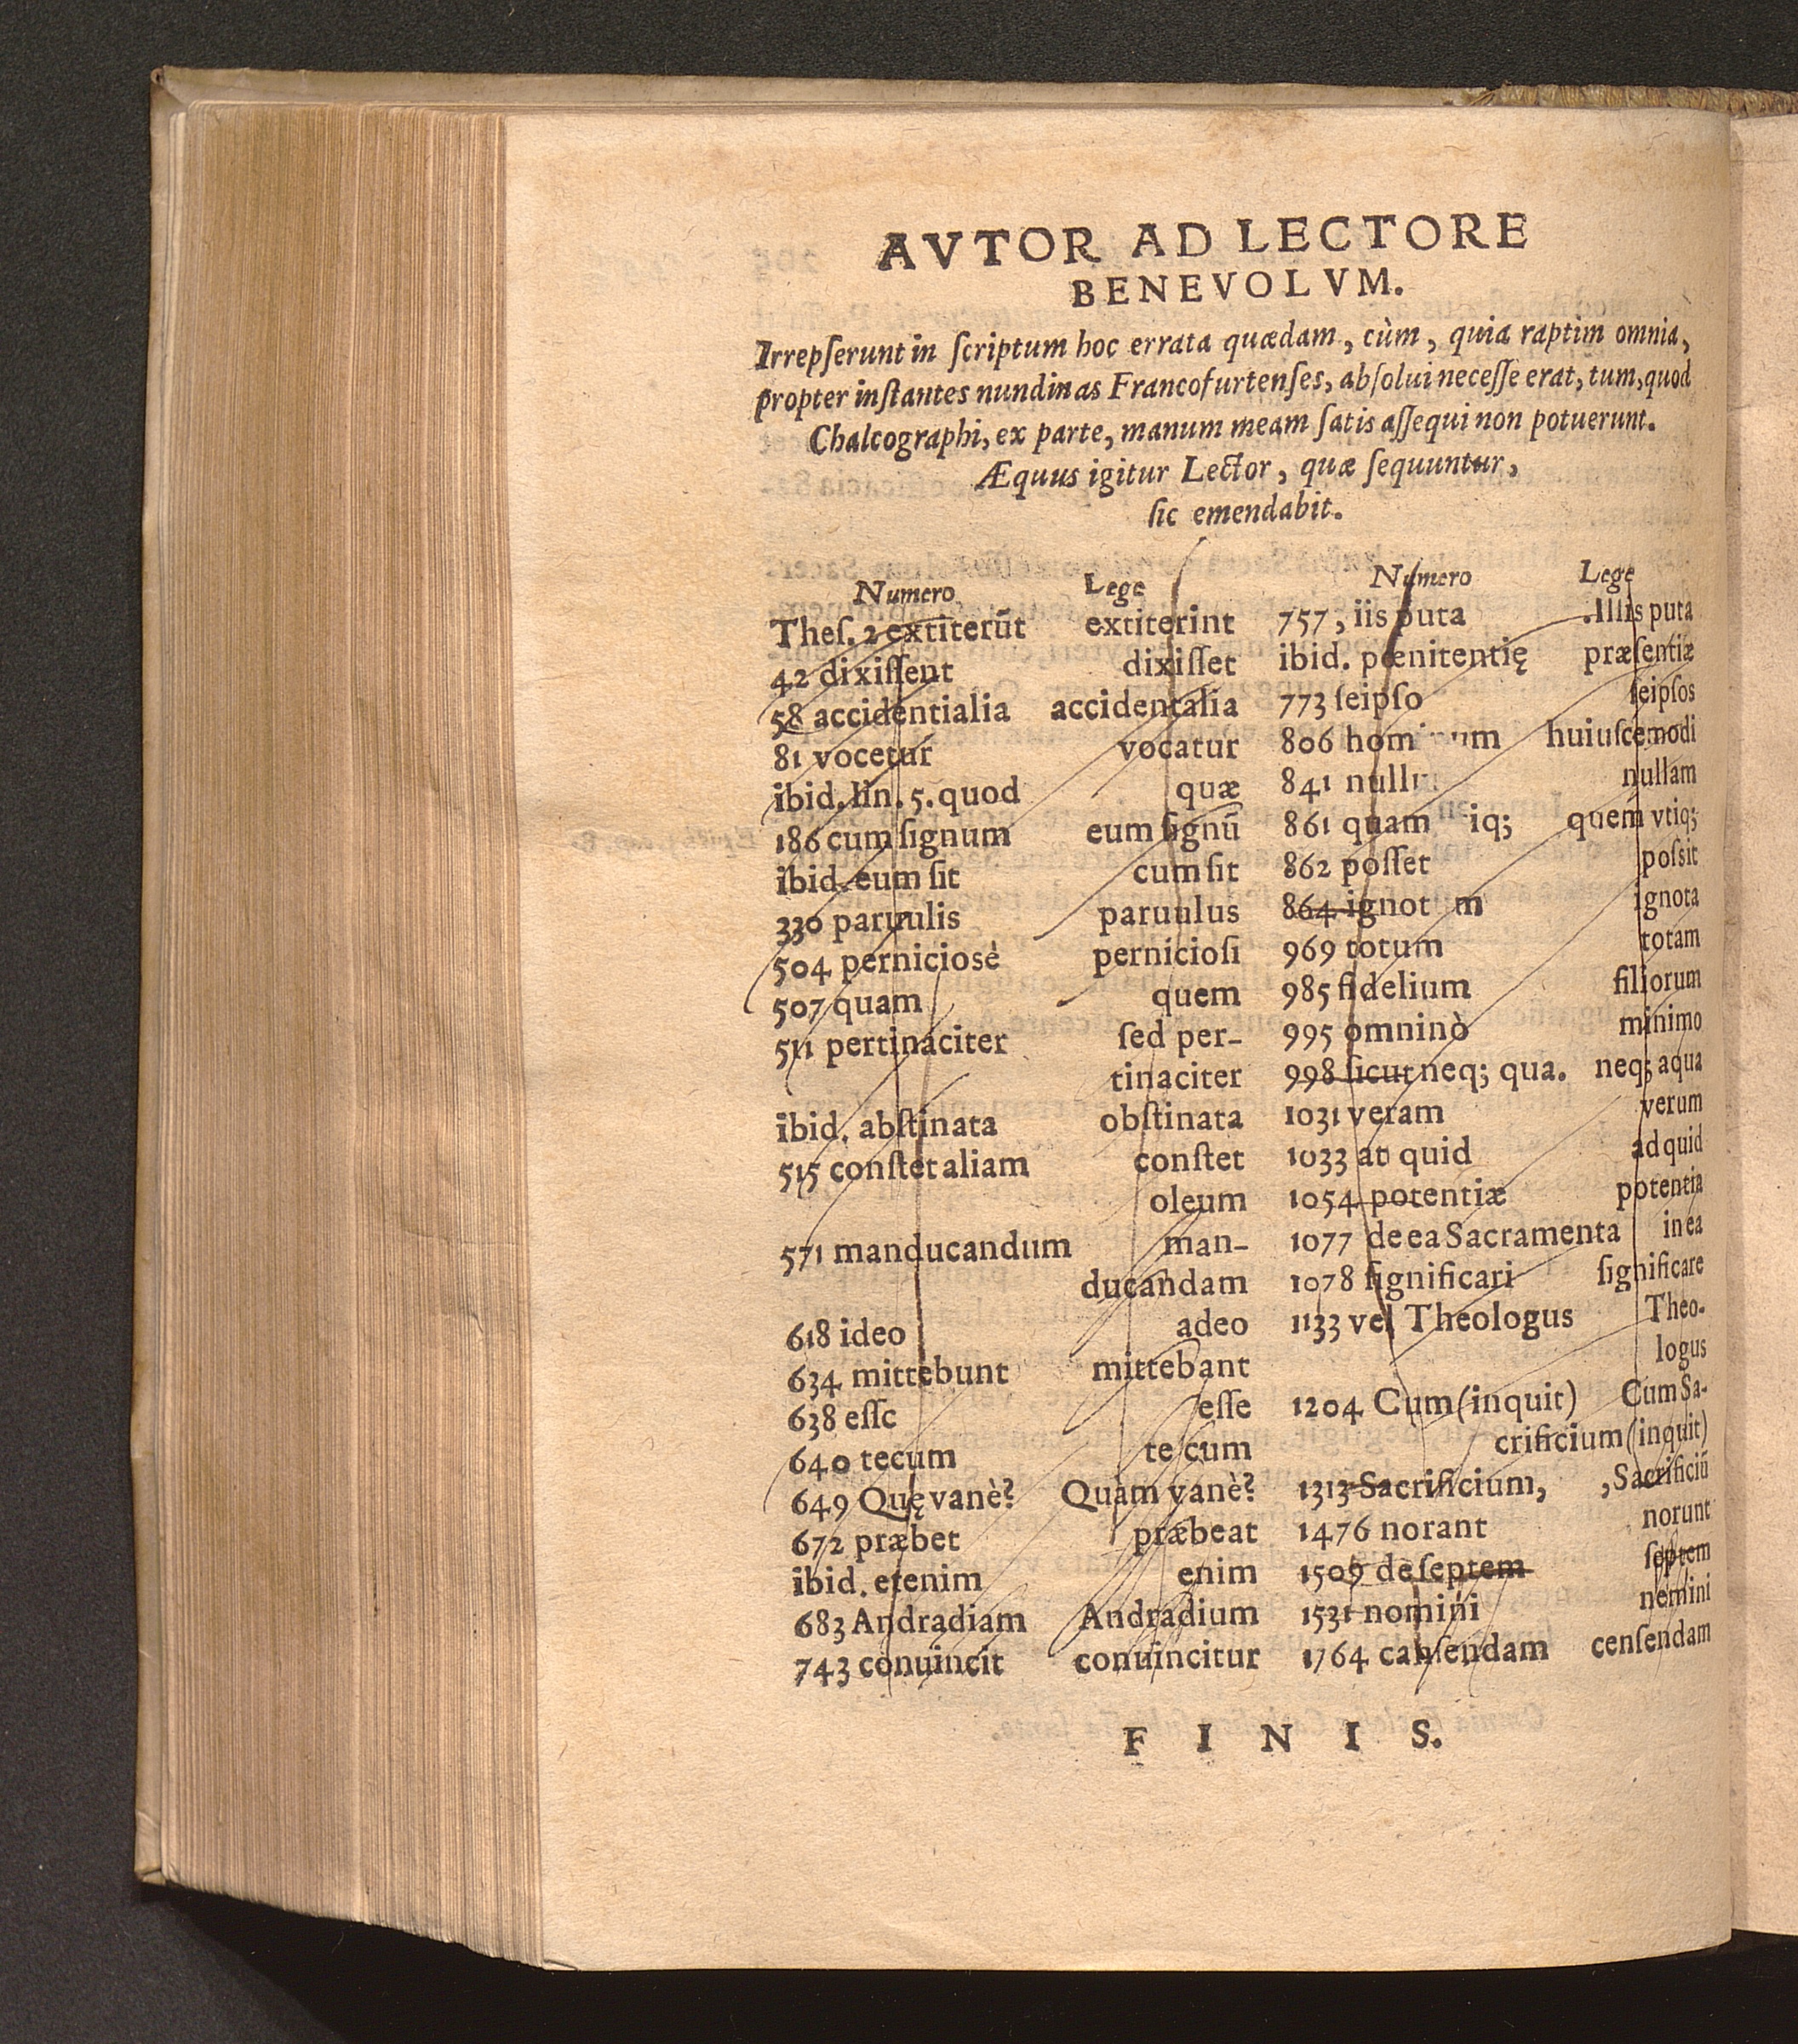 AVTOR AD LECTORE
BENEVOLVM.
Irrepſerunt in ſcriptum hoc errata quædam, cùm, quia raptim omnia,
propter inſtantes nundinas Francofurtenſes, abſolui neceſſe erat, tum, quod
Chalcographi, ex parte, manum meam ſatis aſſequi non potuerunt.
Æquus igitur Lector, quæ ſequuntur,
ſic emendabit.
Numero Lege
Theſ. 2 extiterūt extiterint
42 dixiſſent dixiſſet
58 accidentialia accidentalia
81 vocetur vocatur
ibid. lin. 5. quod quæ
186 cum ſignum eum ſignū
ibid. eum ſit cum ſit
330 paruulis paruulus
504 perniciosè pernicioſi
507 quam quem
511 pertinaciter ſed per-
tinaciter
ibid. abſtinata obſtinata
515 conſtet aliam conſtet
oleum
571 manducandum man-
ducandam
618 ideo adeo
634 mittebunt mittebant
638 eſſc eſſe
640 tecum te cum
649 Quę vanè? Quàm vanè?
672 præbet præbeat
ibid. etenim enim
683 Andradiam Andradium
743 conuincit conuincitur
Numero Lege
757, iis puta .Illis puta
ibid. pœnitentię præſentiæ
773 ſeipſo ſeipſos
806 huiuſcemodi
841 nullam
861 quam quem vtiq;
862 poſſet poſsit
864 ignota
969 totum totam
985 fidelium filiorum
995 omninò minimo
998 ſicut neq; qua. neq; aqua
1031 veram verum
1033 at quid ad quid
1054 potentiæ potentia
1077 de ea Sacramenta in ea
1078 ſignificari ſignificare
1133 vel Theologus Theo-
logus
1204 Cum (inquit) Cum Sa-
crificium (inquit)
1313 Sacrificium, ,Sacrificiū
1476 norant norunt
1509 de ſeptem ſeptem
1531 nomini nemini
1764 canſendam cenſendam
FINIS.